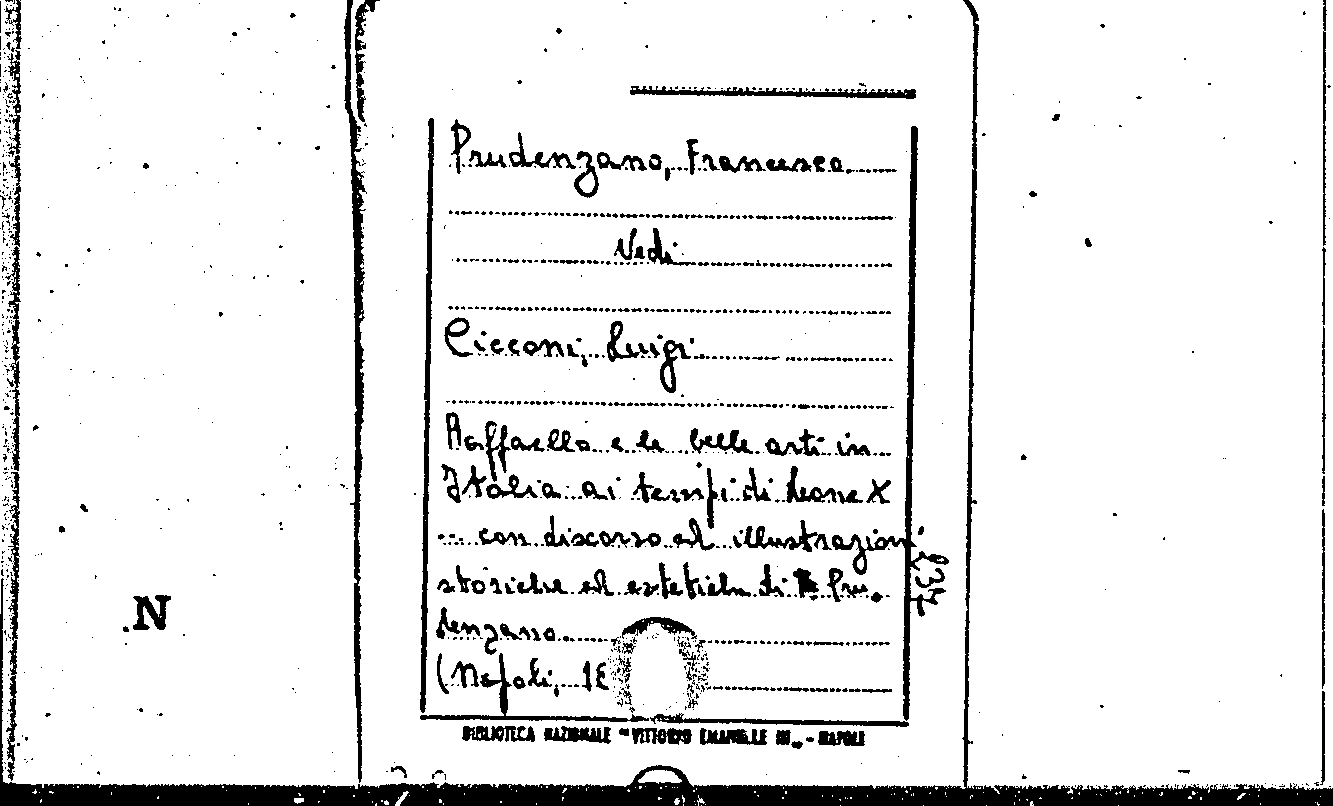 Prudenzano, Francesco.
Vedi
Cicconi, Luigi.
Raffaello e le belle arti in
Italia ai tempi di Leone X
... con discorso ed illustrazioni
storiche ed estetiche di F. Pru-
denzano.
(Napoli, 18
N
BIBLIOTECA NAZIONALE "VITTORIO EMANUELE III" - NAPOLI